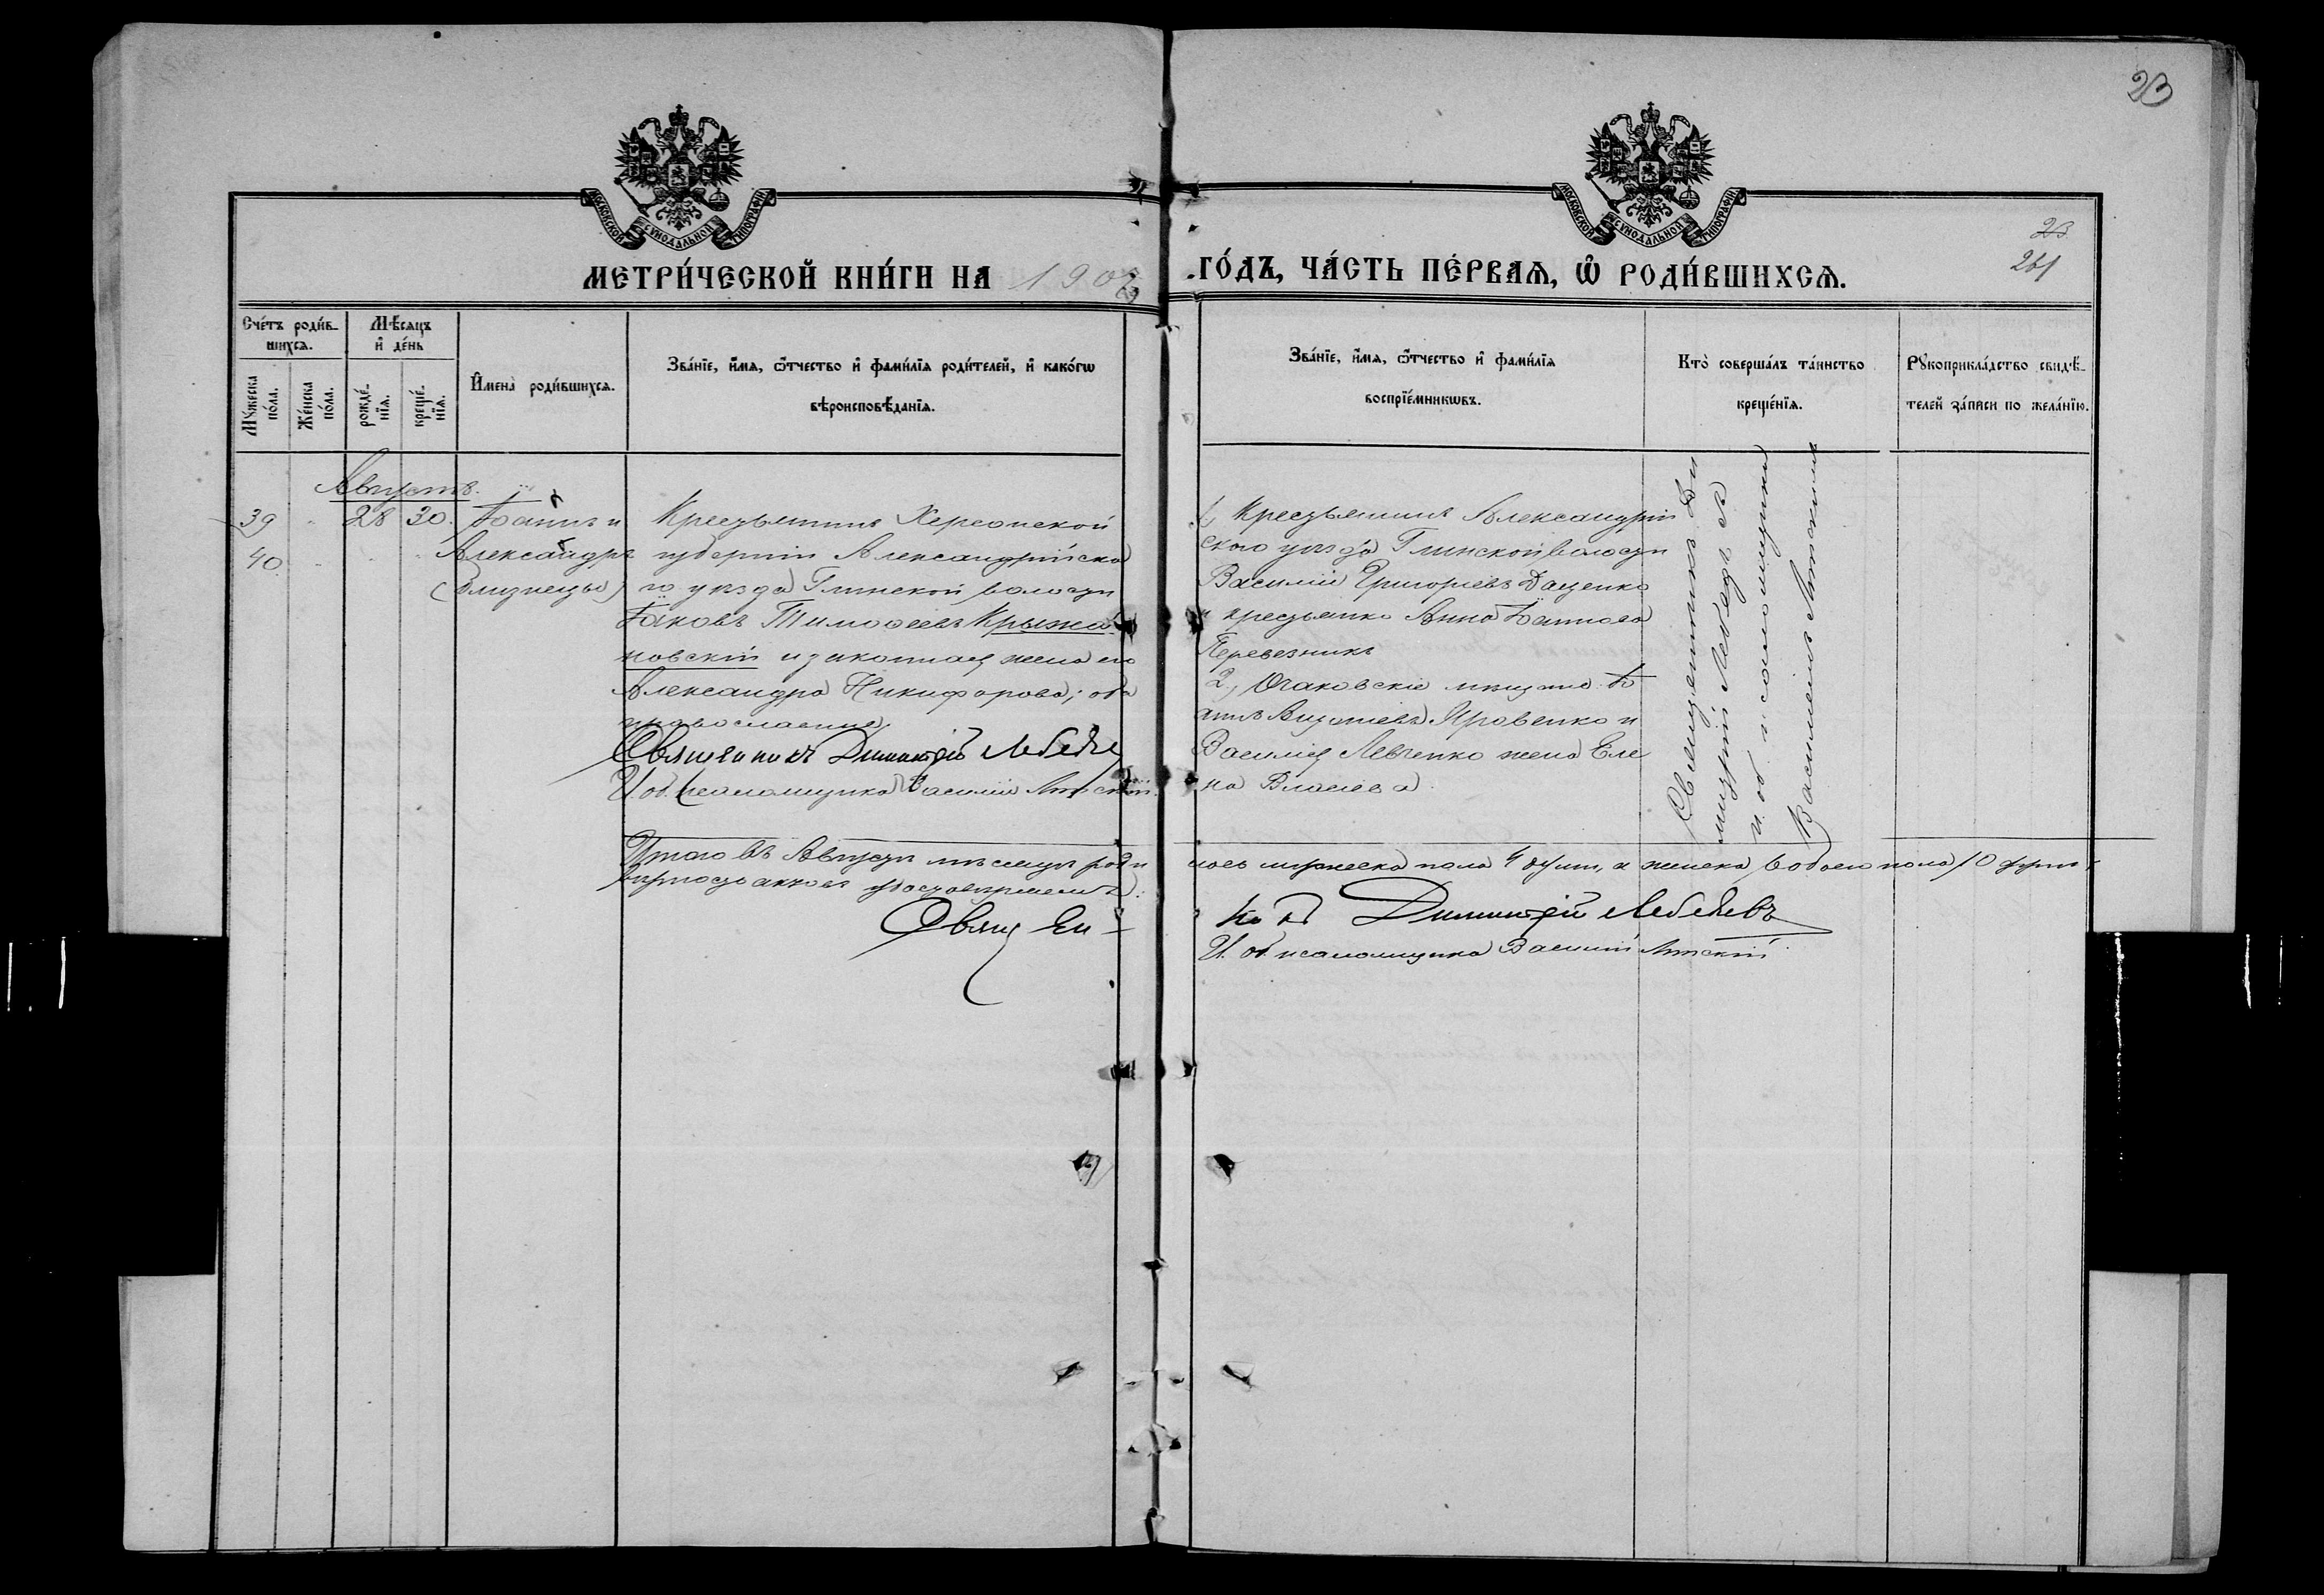 23
МОСКОВСКОЙ СѴНОДАЛЬНОЙ ТИПОГРАФІИ
МОСКОВСКОЙ СѴНОДАЛЬНОЙ ТИПОГРАФІИ
23
261
МЕТРИ́ЧЕСКОЙ КНИ́ГИ НА 1902 ГО́ДЪ, ЧА́СТЬ ПЕ́РВАѦ, Ѡ РОДИ́ВШИХСѦ.
Сче́тъ роди́в-
шихсѧ.
Мѣ́сѧцъ
и де́нь
Мꙋжеска
по́ла.
Же́нска
по́ла.
рожде́-
нїѧ.
креще́-
нїѧ.
Имена̀ роди́вшихсѧ.
Зва́нїе, и́мѧ, ѻ҆́тчество и фами́лїѧ роди́телей, и како́гѡ
вѣроисповѣ́данїѧ.
Зва́нїе, и́мѧ, ѻ҆́тчество и фами́лїѧ
воспрїе́мникѡвъ.
Кто̀ соверша́лъ та́инство
креще́нїѧ.
Рꙋкоприкла́дство свидѣ́-
телей за́писи по жела́нїю.
Августъ.
39 28 30. Іоаннъ и
40 Александръ
(близнецы)
Крестьянинъ Херсонской
губерніи Александрійска
го уѣзда Глинской волости
Іаковъ Тимоѳеевъ Крыжа
новскій и законная жена его
Александра Никифорова; оба
православные.
Священникъ Димитрій Лебедев
И. об. псаломщика Василій
1, Крестьянинъ Александрій
скаго уѣзда Глинской волости
Василій Григорьевъ Даценко
и крестьянка Анна Іоаннова
Перевезникъ
2, Очаковскіе мѣщане Іо
аннъ Яровенко и
Василія Левченко жена Еле
на Власіева
Священникъ Ди
митрій Лебедевъ
и. об. псаломщика
Василіемъ
Итого въ Августѣ мѣсяцѣ роди лось мужеска пола 4 души, а женска 6 обоего пола 10 душъ;
вѣрность актовъ удостовѣряемъ:
Священ никъ Димитрій Лебедевъ
И. об. псаломщика Василій